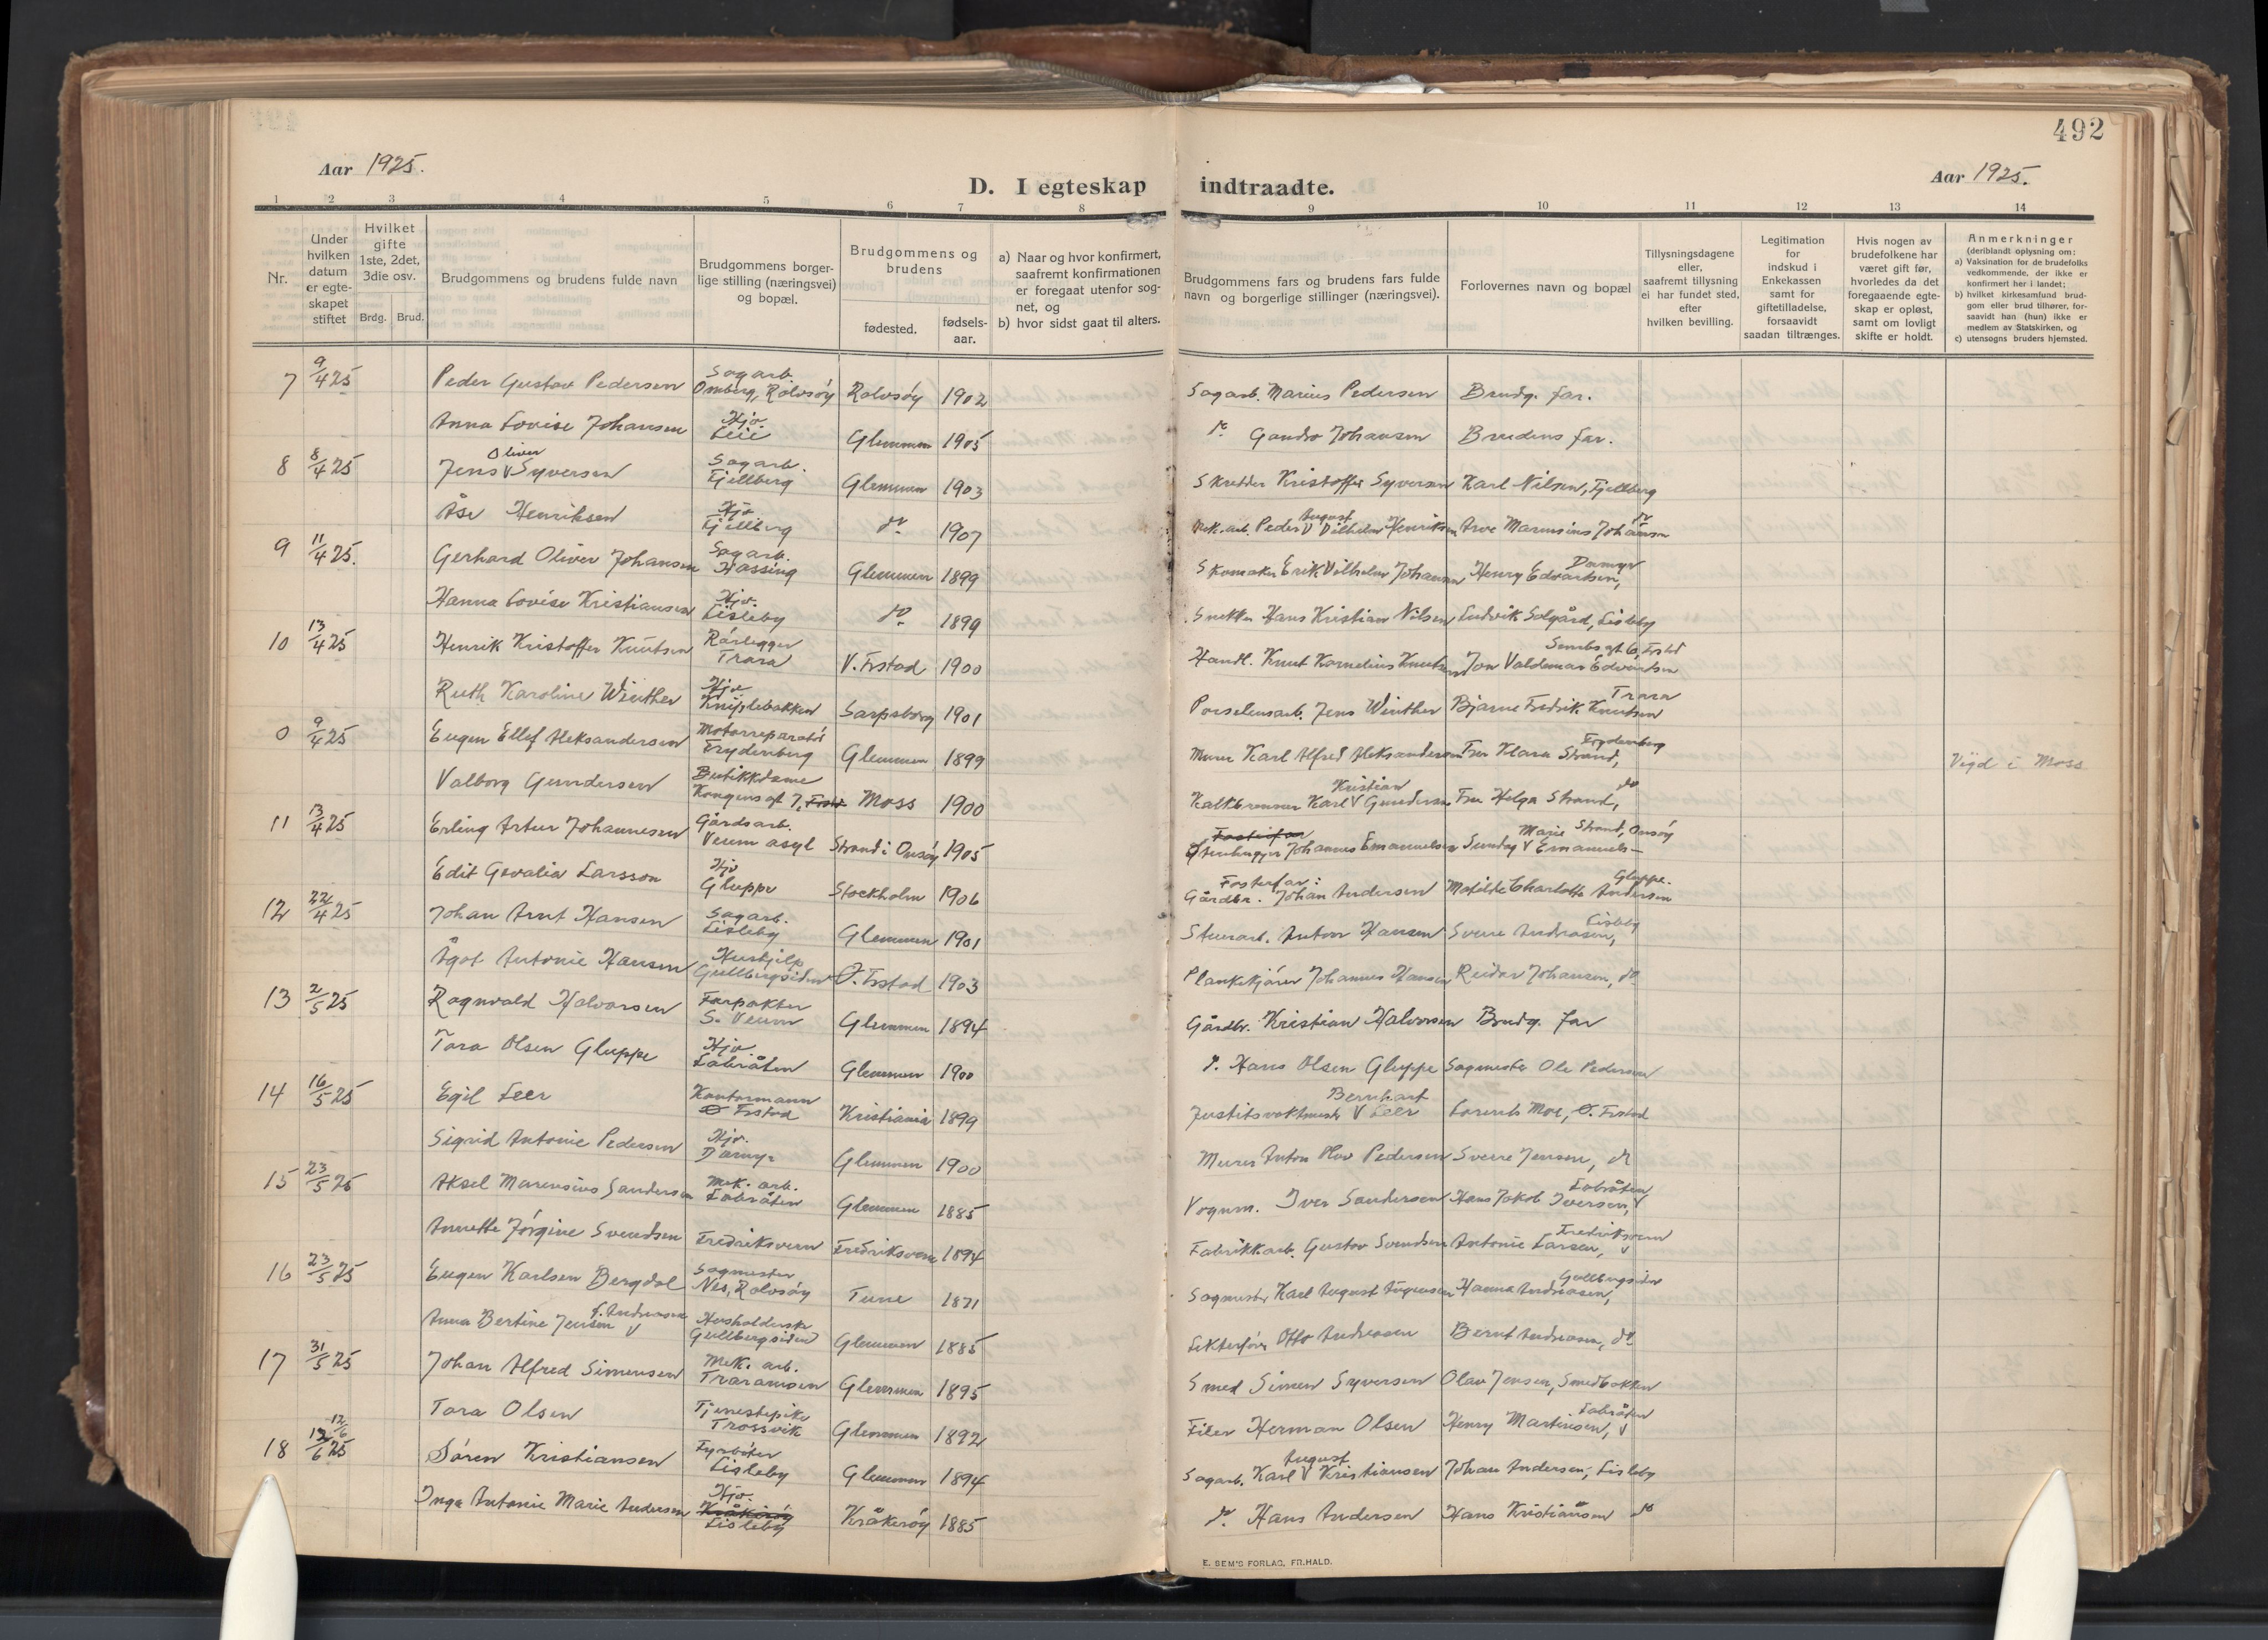 492
Aar 1925.
D. I egteskap indtraadte.
Aar 1925.
1 2 3 4 5 6 7 8 9 10 11 12 13 14
Nr.
Under hvilken datum er egteskapet stiftet
Hvilket gifte 1ste, 2det, 3die osv.
Brdg. Brud.
Brudgommens og brudens fulde navn
Brudgommens borgerlige stilling (næringsvei) og bopæl.
Brudgommens og brudens
fødested.
fødselsaar.
a) Naar og hvor konfirmert, saafremt konfirmationen er foregaat utenfor sognet, og
b) hvor sidst gaat til alters.
Brudgommens fars og brudens fars fulde navn og borgerlige stillinger (næringsvei).
Forlovernes navn og bopæl
Tillysningsdagene eller, saafremt tillysning ei har fundet sted, efter hvilken bevilling.
Legitimation for indskud i Enkekassen samt for giftetilladelse, forsaavidt saadan tiltrænges.
Hvis nogen av brudefolkene har været gift før, hvorledes da det foregaaende egteskap er opløst, samt om lovligt skifte er holdt.
Anmerkninger
(deriblandt oplysning om:
a) Vaksination for de brudefolks vedkommende, der ikke er konfirmert her i landet;
b) hvilket kirkesamfund brudgom eller brud tilhører, forsaavidt han (hun) ikke er medlem av Statskirken, og
c) utensogns bruders hjemsted.
7 9/4 25 Peder Gustav Pedersen Sagarb. Omberg, Rolvsøy Rolvsøy 1902 Sagarb. Marius Pedersen Brudg. far.
Anna Lovise Johansen Hjv. Leie Glemmen 1905 do Johansen Brudens far.
8 8/4 25 Jens Oliver Syversen Sagarb. Fjellberg Glemmen 1903 Skredder Kristoffer Syversen Karl Nilsen, Fjellberg
Åse Henriksen Hjv. Fjellberg do 1907 Mek. arb. Peder August Vilhelm Henriksen Arve Marensius Johansen do
9 11/4 25. Gerhard Oliver Johansen Sagarb. Hassing Glemmen 1899 Skomaker Erik Vilhelm Johansen Henry Edvartsen, Damyr
Hanna Lovise Kristiansen Hjv. Lisleby do 1899 Snekker Hans Kristian Nilsen Ludvik Solgård, Lisleby
10 13/4 25 Henrik Kristoffer Knutsen Rørlegger Trara V. Frstad 1900 Handl. Knut Kornelius Knutsen Jon Valdemar Edvartsen
Ruth Karoline Winther Hjv. Kniplebakken Sarpsborg 1901 Porselensarb. Jens Winther Bjarne Fredrik Knutsen Trara
0 9/4 25 Eugen Ellef Aleksandersen Motorreparatør Frydenberg Glemmen 1899 Murer Karl Alfred Aleksandersen Fru Klara Strand, Frydenberg
Valborg Gundersen Butikkdame Kongens gt 7, Frstd Moss 1900 Kalkbrenner Karl Kristian Gundersen Fru Helga Strand, do Vigd i Moss
11 13/4 25 Erling Artur Johannesen Gårdsarb. Veum asyl Strand i Onsøy 1905 Johannes Emanuelsen Marie Emanuels- Strand, Onsøy
Edit Gevalia Larsson Hjv Gluppe Stockholm 1906 Fosterfar: Gårdbr. Johan Andersen Matilde Charlotte Andersen Gluppe.
12 22/4 25 Johan Arnt Hansen Sagarb. Lisleby Glemmen 1901 Anton Hansen Sverre Andreasen, Lisleby
Ågot Antonie Hansen Hushjelp Gullbergsiden Ø. Frstad 1903 Plankekjører Johannes Hansen Reidar Johansen, do
13 2/5 25 Ragnvald Halvorsen Forpakter S. Veum Glemmen 1894 Gårdbr. Kristian Halvorsen Brudg. far
Tora Olsen Gluppe Hjv Labråten Glemmen 1900 do. Hans Olsen Gluppe Sagmester Ole Pedersen
14 16/5 25 Egil Leer Kontormann Ø Frstad Kristiania 1899 Bernhart Leer Lorents Moe, Ø. Frstad
Sigrid Antonie Pedersen Hjv. Damyr Glemmen 1900 Murer Anton Olav Pedersen Sverre Jensen, do
15 23/5 25 Aksel Marensius Sandersen Mek. arb. Labråten Glemmen 1885 Vognm. Iver Sandersen Hans Jakob Iversen, Labråten
Annette Jørgine Svendsen Fredriksvern Fredriksvern 1894 Fabrikkarb. Gustav Svendsen Antonie Larsen, Fredriksvern
16 23/5 25 Eugen Karlsen Bergdal Sagmester Nes, Rolvsøy Tune 1871 Sagmester Karl August Hanna Andreasen, Gullbergsiden
Anna Bertine Jensen f. Andreasen Husholderske Gullbergsiden Glemmen 1885 Otto Andreasen Bernt Andreasen, do
17 31/5 25 Johan Alfred Simensen Mek. arb. Traramoen Glemmen 1895 Smed Simen Syversen Olav Jensen, Smedbakken
Tora Olsen Tjenestepike Trosvik Glemmen 1892 Filer Herman Olsen Henry Martinsen, Labråten
18 12/6 12/6 25 Søren Kristiansen Fyrbøter Lisleby Glemmen 1894 Sagarb. Karl August Kristiansen Johan Andersen, Lisleby
Inga Antonie Marie Andersen Hjv. Kråkerøy Lisleby Kråkerøy 1885 do Hans Andersen Hans Kristiansen do
E. SEM'S FORLAG, FR.HALD.